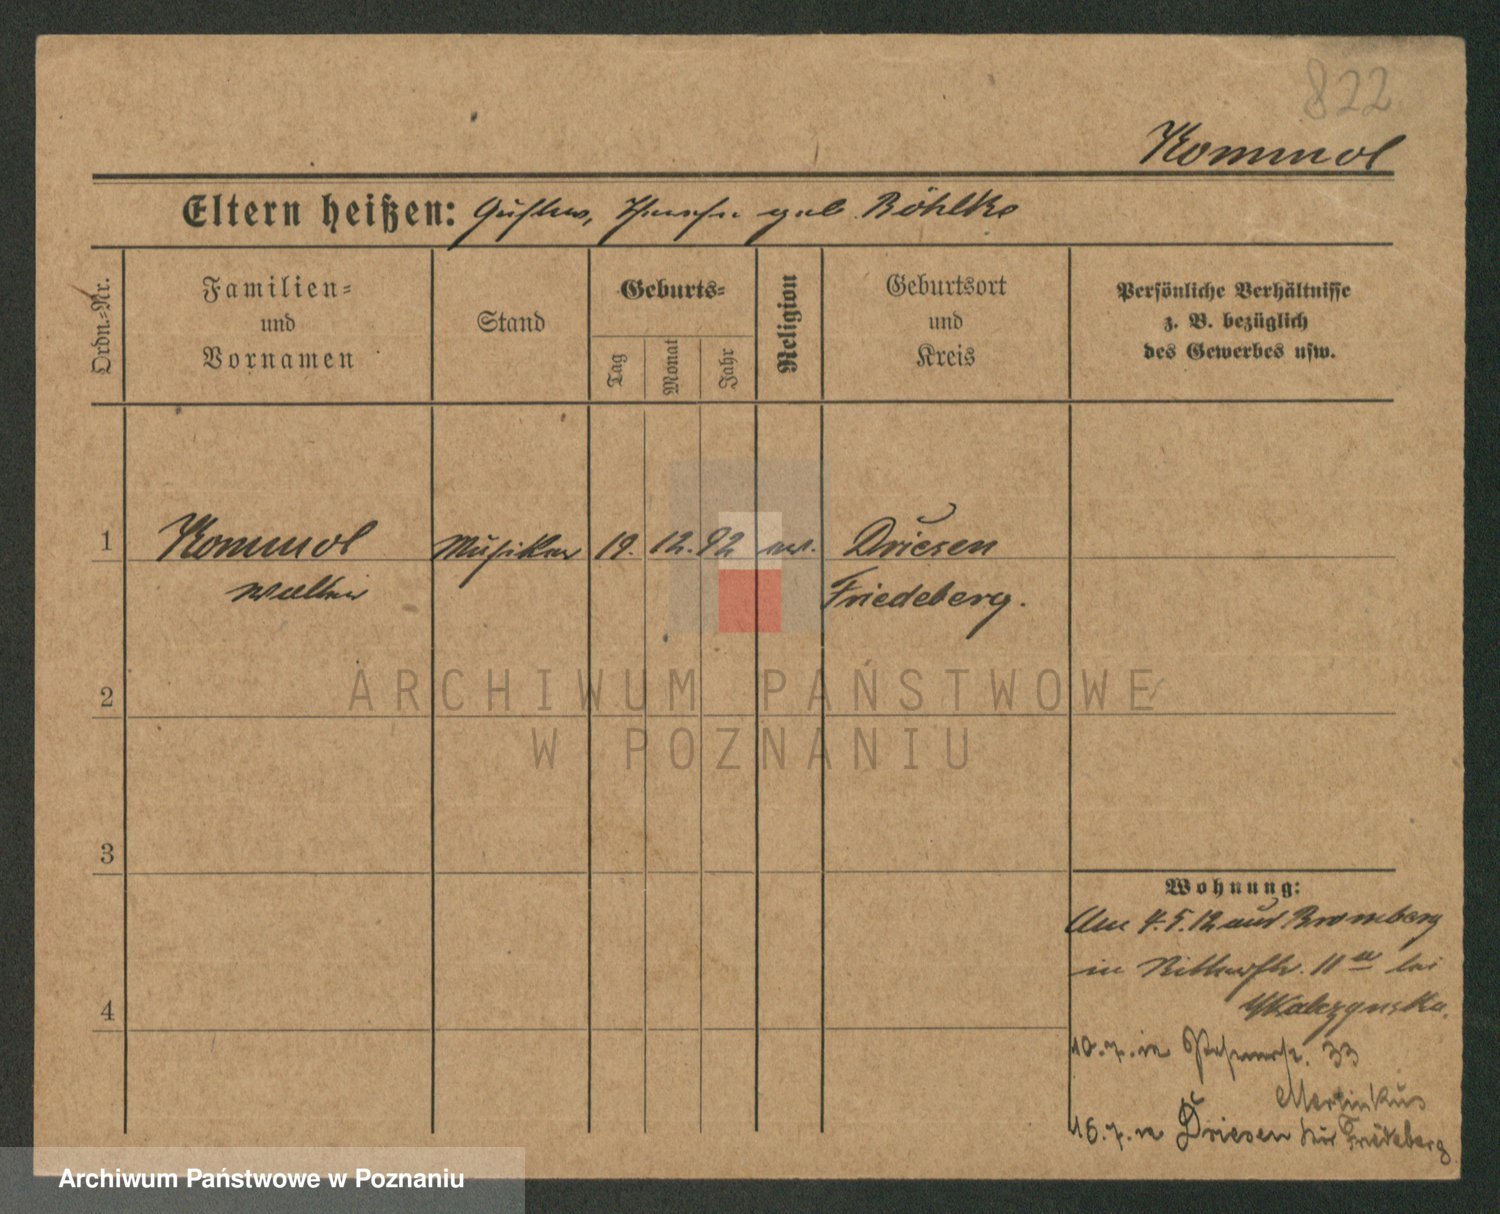 822
Kommol
Eltern heißen: Gustav, geb. Böhlke
Ordn.-Nr.
Familien-
und
Vornamen
Stand
Geburts-
Tag
Monat
Jahr
Religion
Geburtsort
und
Kreis
Persönliche Verhältnisse
z. B. bezüglich
des Gewerbes usw.
1 Kommol Musiker 19. 12. 92 ev. Driesen
Walter Friedeberg.
ARCHIWUM PAŃSTWOWE
W POZNANIU
2
3
4
Wohnung:
Am 4.5.12 aus Bromberg
in Ritterstr. 11a bei
10.7. in 33
Martinkus
16.7. n Driesen Kr Friedeberg
Archiwum Państwowe w Poznaniu